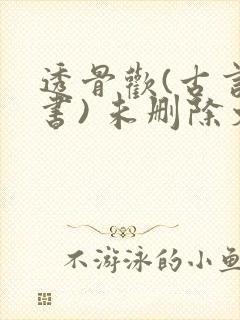 透骨歡(古
書)未删除
不游泳的小鱼